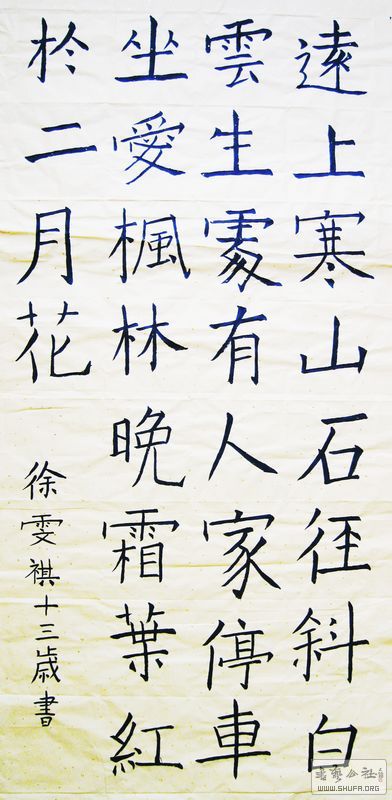 遠上寒山石径斜白
雲生處有人家停車
坐愛楓林晚霜葉紅
於二月花
徐雯祺十三歲書
书艺公社
WWW.SHUFA.ORG